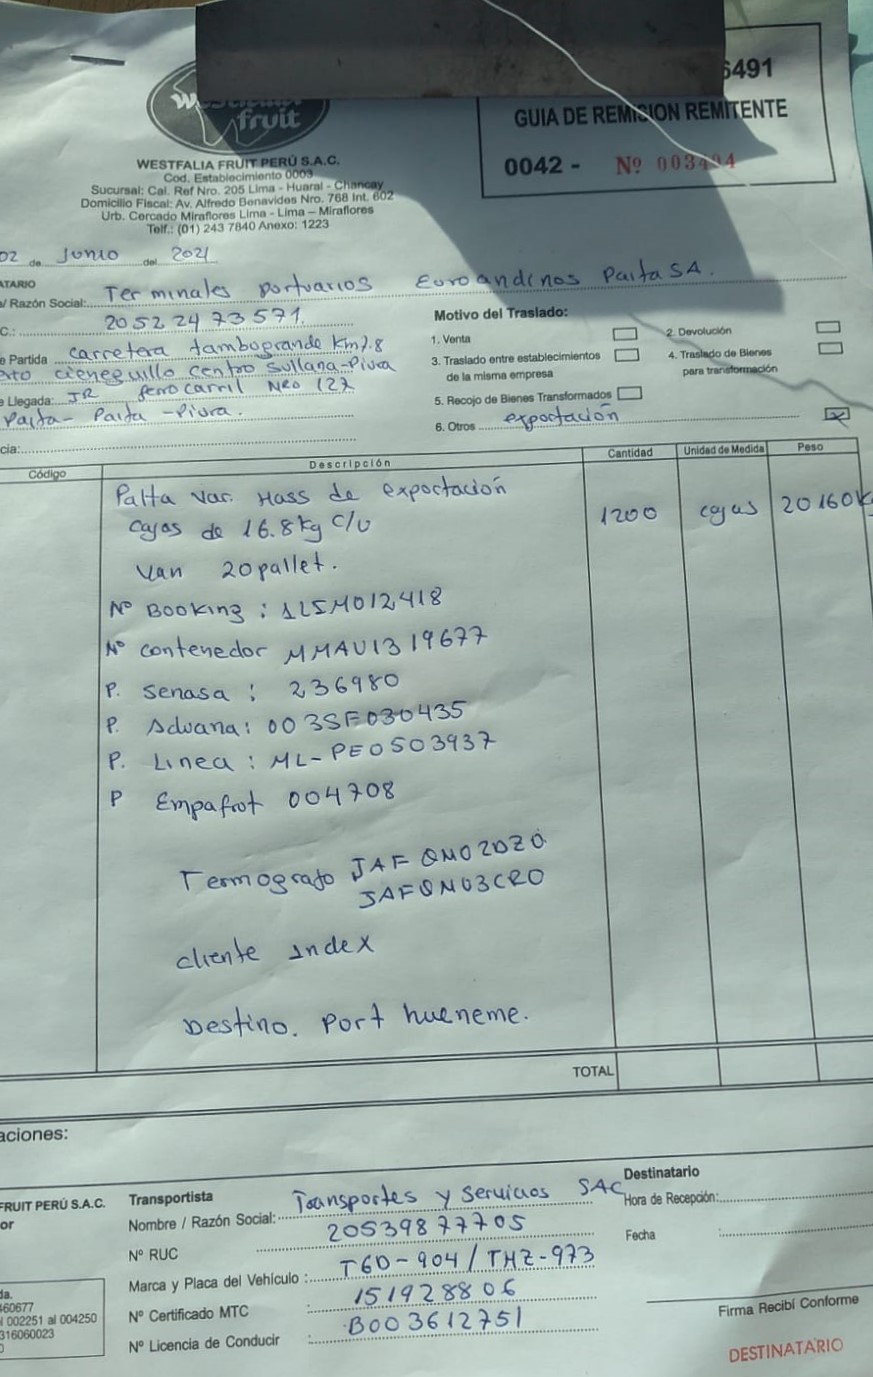 6491
GUIA DE REMISION REMITENTE
0042 - Nº 003494
Westfalia
fruit
WESTFALIA FRUIT PERÚ S.A.C.
Cod. Establecimiento 0003
Sucursal: Cal. Ref Nro. 205 Lima - Huaral - Chancay
Domicilio Fiscal: Av. Alfredo Benavides Nro. 768 Int. 602
Urb. Cercado Miraflores Lima - Lima – Miraflores
Telf.: (01) 243 7840 Anexo: 1223
02 de Junio del 2021
ATARIO
/ Razón Social: Terminales portuarios Euroandinos Paita SA.
C.: 20522473571.
e Partida carretera tambogrande Km7.8
cieneguillo centro sullana-Piura
e Llegada: JR ferrocarril NRO 127
Paita - Paita - Piura.
cia:
Motivo del Traslado:
1. Venta
2. Devolución
3. Traslado entre establecimientos
de la misma empresa
4. Traslado de Bienes
para transformación
5. Recojo de Bienes Transformados
6. Otros exportación
Código Descripción Cantidad Unidad de Medida Peso
Palta Var. Hass de exportación
Cajas de 16.8kg c/u 1200 cajas 20160K
Van 20 pallet.
Nº Booking : 12SM012418
Nº contenedor MMAU1319677
P. Senasa : 236980
P. Aduana: 003SF030435
P. Linea : ML-PE0503937
P Empafrut 004708
Termografo JAFQM02DZ0
JAFQM03CR0
cliente Index
Destino. Port hueneme.
TOTAL
aciones:
FRUIT PERÚ S.A.C.
or
da.
460677
l 002251 al 004250
316060023
0
Transportista
Nombre / Razón Social: Transportes y Servicios SAC
Nº RUC 20539877705
Marca y Placa del Vehículo : T6D-904 / THZ-973
Nº Certificado MTC : 151928806
Nº Licencia de Conducir : B003612751
Destinatario
Hora de Recepción:
Fecha :
Firma Recibí Conforme
DESTINATARIO